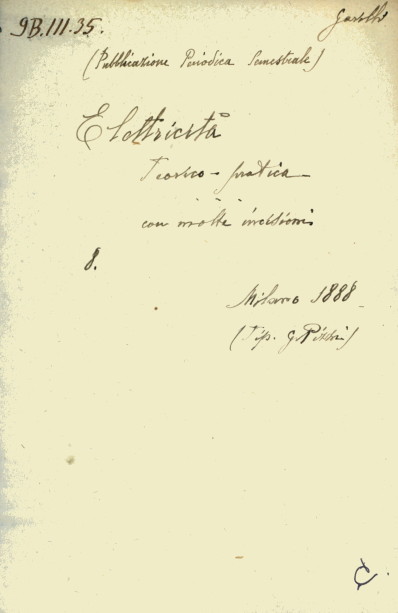 9B.III.35.
(Pubblicazione Periodica Semestrale)
Elettricità
Teorico-pratica
...
con molte incisioni
8.
Milano 1888
(Tip. G.
C.